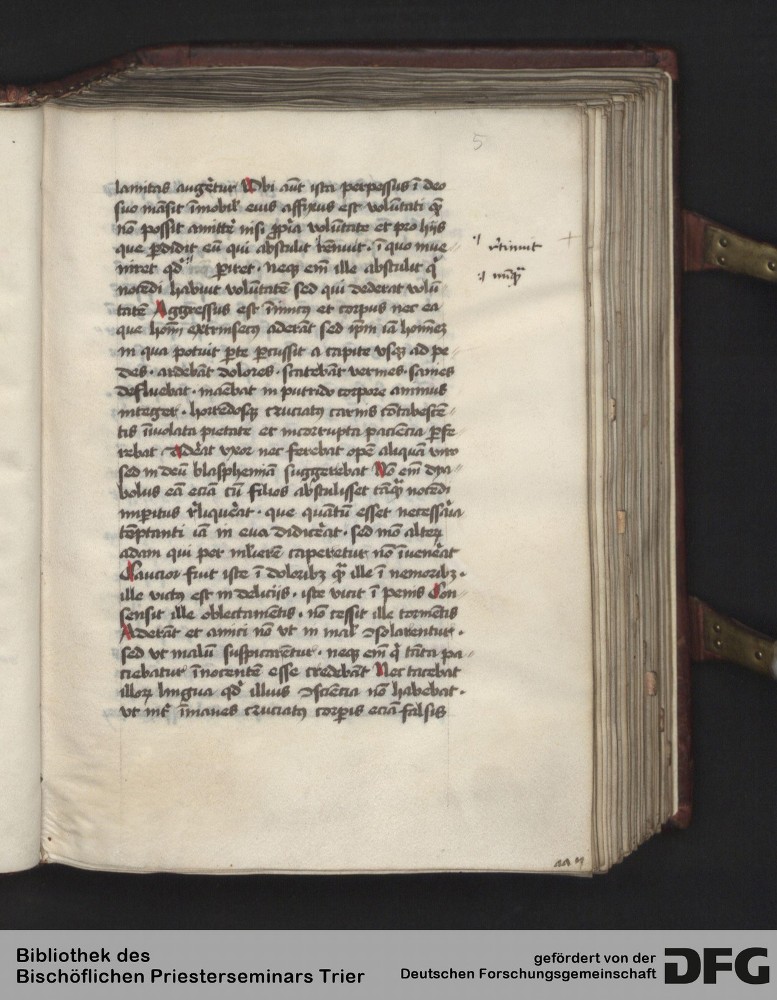 5
lamitas augeretur Ubi aut ista perpessus ī deo
suo māsit īmobil' eius affixus est volūtati q̄
nō possit amitt'e nisi ꝓp̄ia volūtate et pro hijs
que ꝑdidit eū qui abstulit tenuit · ī quo nūc
niret qd' ꝑiret · neqꝫ em̄ ille abstulit q̄
nocēdi habuit volūtatē sed qui dederat volū
tatē Aggressus est īimicꝰ et corpus nec ea
que hom̄i extrinsecꝰ aderāt sed ip̄m iā homīeꝫ
in qua potuit ꝑte ꝑcussit a capite vsqꝫ ad pe
des · ardebāt dolores · scatebāt vermes · sanies
defluebat · manēbat in putrido corpore animus
integer · horrēdosqꝫ cruciatꝰ carnis cōtabescē
tis īuiolata pietate et incorrupta paciencia ꝑfe
rebat Ad'at vxor nec ferebat opē aliquā viro
sed in deū blasphemiā suggerebat Nō em̄ dya
bolus eā eciā cū filios abstulisset tāq̄ nocēdi
imp̄itus r̄liquerat · que quātū esset necessaria
tēptanti iā in eua didicerat · sed mō alterꝝ
adam qui per mulierē caperetur nō īuenerat
Caucior fuit iste ī doloribꝫ q̄ ille ī nemoribꝫ ·
ille victꝰ est in delicijs · iste vicit ī penis Con
sensit ille oblectamētis · nō cessit ille tormētis
Aderāt et amici nō vt in mal' ꝯsolarentur ·
sed vt malū suspicarētur · neqꝫ em̄ q̄ tāta pa
ciebatur īnocentē esse credebāt Nec tacebat
illoꝝ lingua qd' illius ꝯsciēcia nō habebat ·
vt int' īmanes cruciatꝰ corꝑis eciā falsis
r̄tinuit
nūq̄
aa ij
Bibliothek des
Bischöflichen Priesterseminars Trier
gefördert von der
Deutschen Forschungsgemeinschaft
DFG